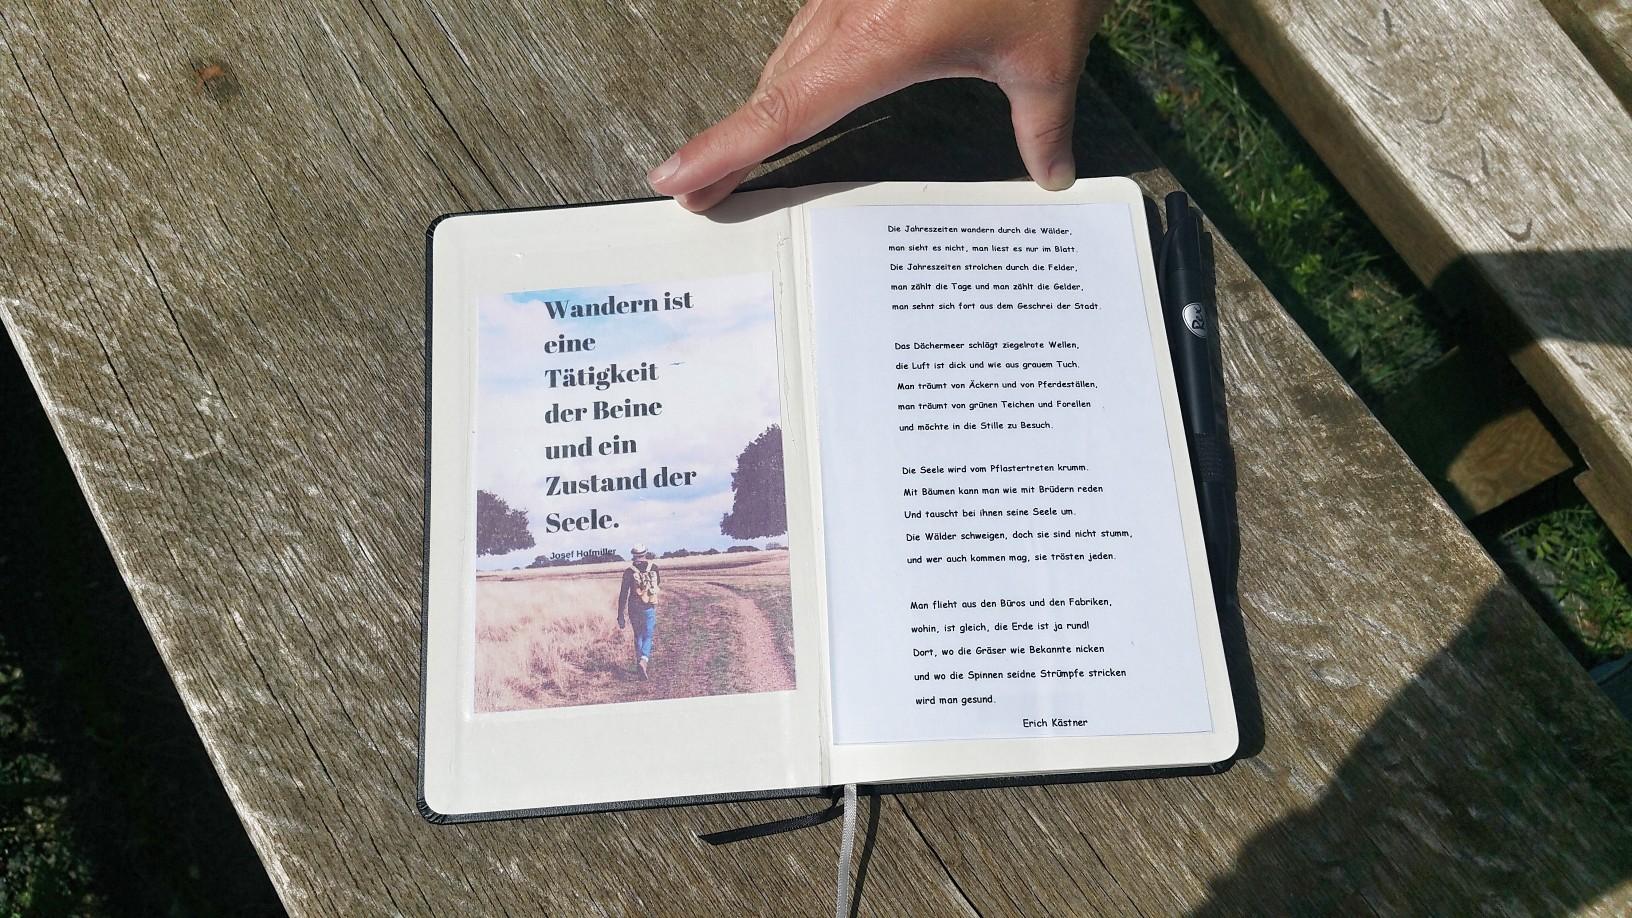 Wandern ist
eine
Tätigkeit
der Beine
und ein
Zustand der
Seele.
Josef Hofmiller
Die Jahreszeiten wandern durch die Wälder,
man sieht es nicht, man liest es nur im Blatt.
Die Jahreszeiten strolchen durch die Felder,
man zählt die Tage und man zählt die Gelder,
man sehnt sich fort aus dem Geschrei der Stadt.
Das Dächermeer schlägt ziegelrote Wellen,
die Luft ist dick und wie aus grauem Tuch.
Man träumt von Äckern und von Pferdeställen,
man träumt von grünen Teichen und Forellen
und möchte in die Stille zu Besuch.
Die Seele wird vom Pflastertreten krumm.
Mit Bäumen kann man wie mit Brüdern reden
Und tauscht bei ihnen seine Seele um.
Die Wälder schweigen, doch sie sind nicht stumm,
und wer auch kommen mag, sie trösten jeden.
Man flieht aus den Büros und den Fabriken,
wohin, ist gleich, die Erde ist ja rund!
Dort, wo die Gräser wie Bekannte nicken
und wo die Spinnen seidne Strümpfe stricken
wird man gesund.
Erich Kästner
Rex